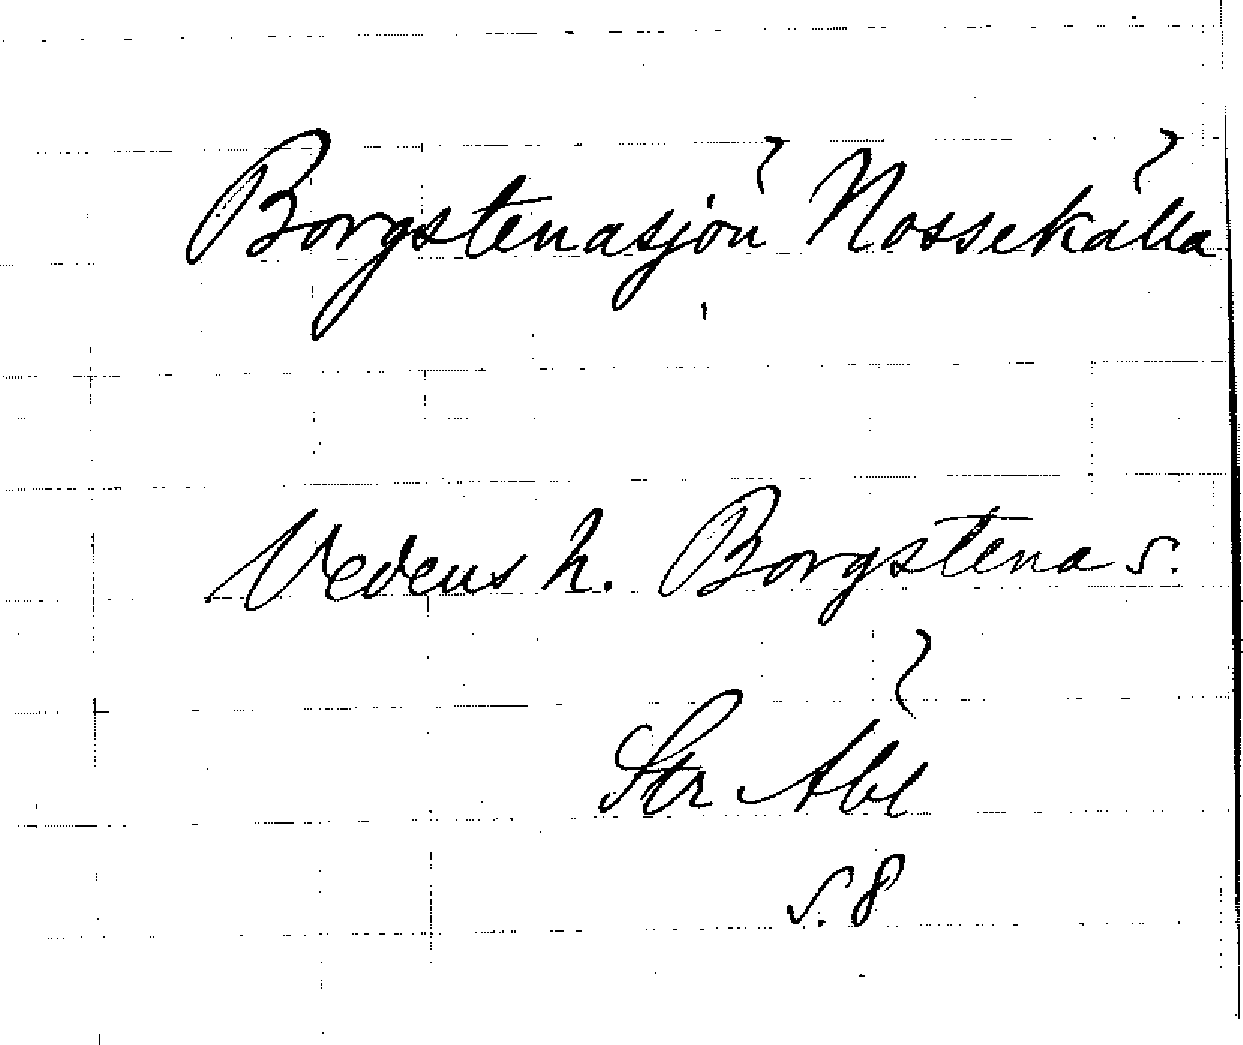 Borgstenasjön Nossekälla
Vedens h. Borgstena s.
Str Åbl
s. 8